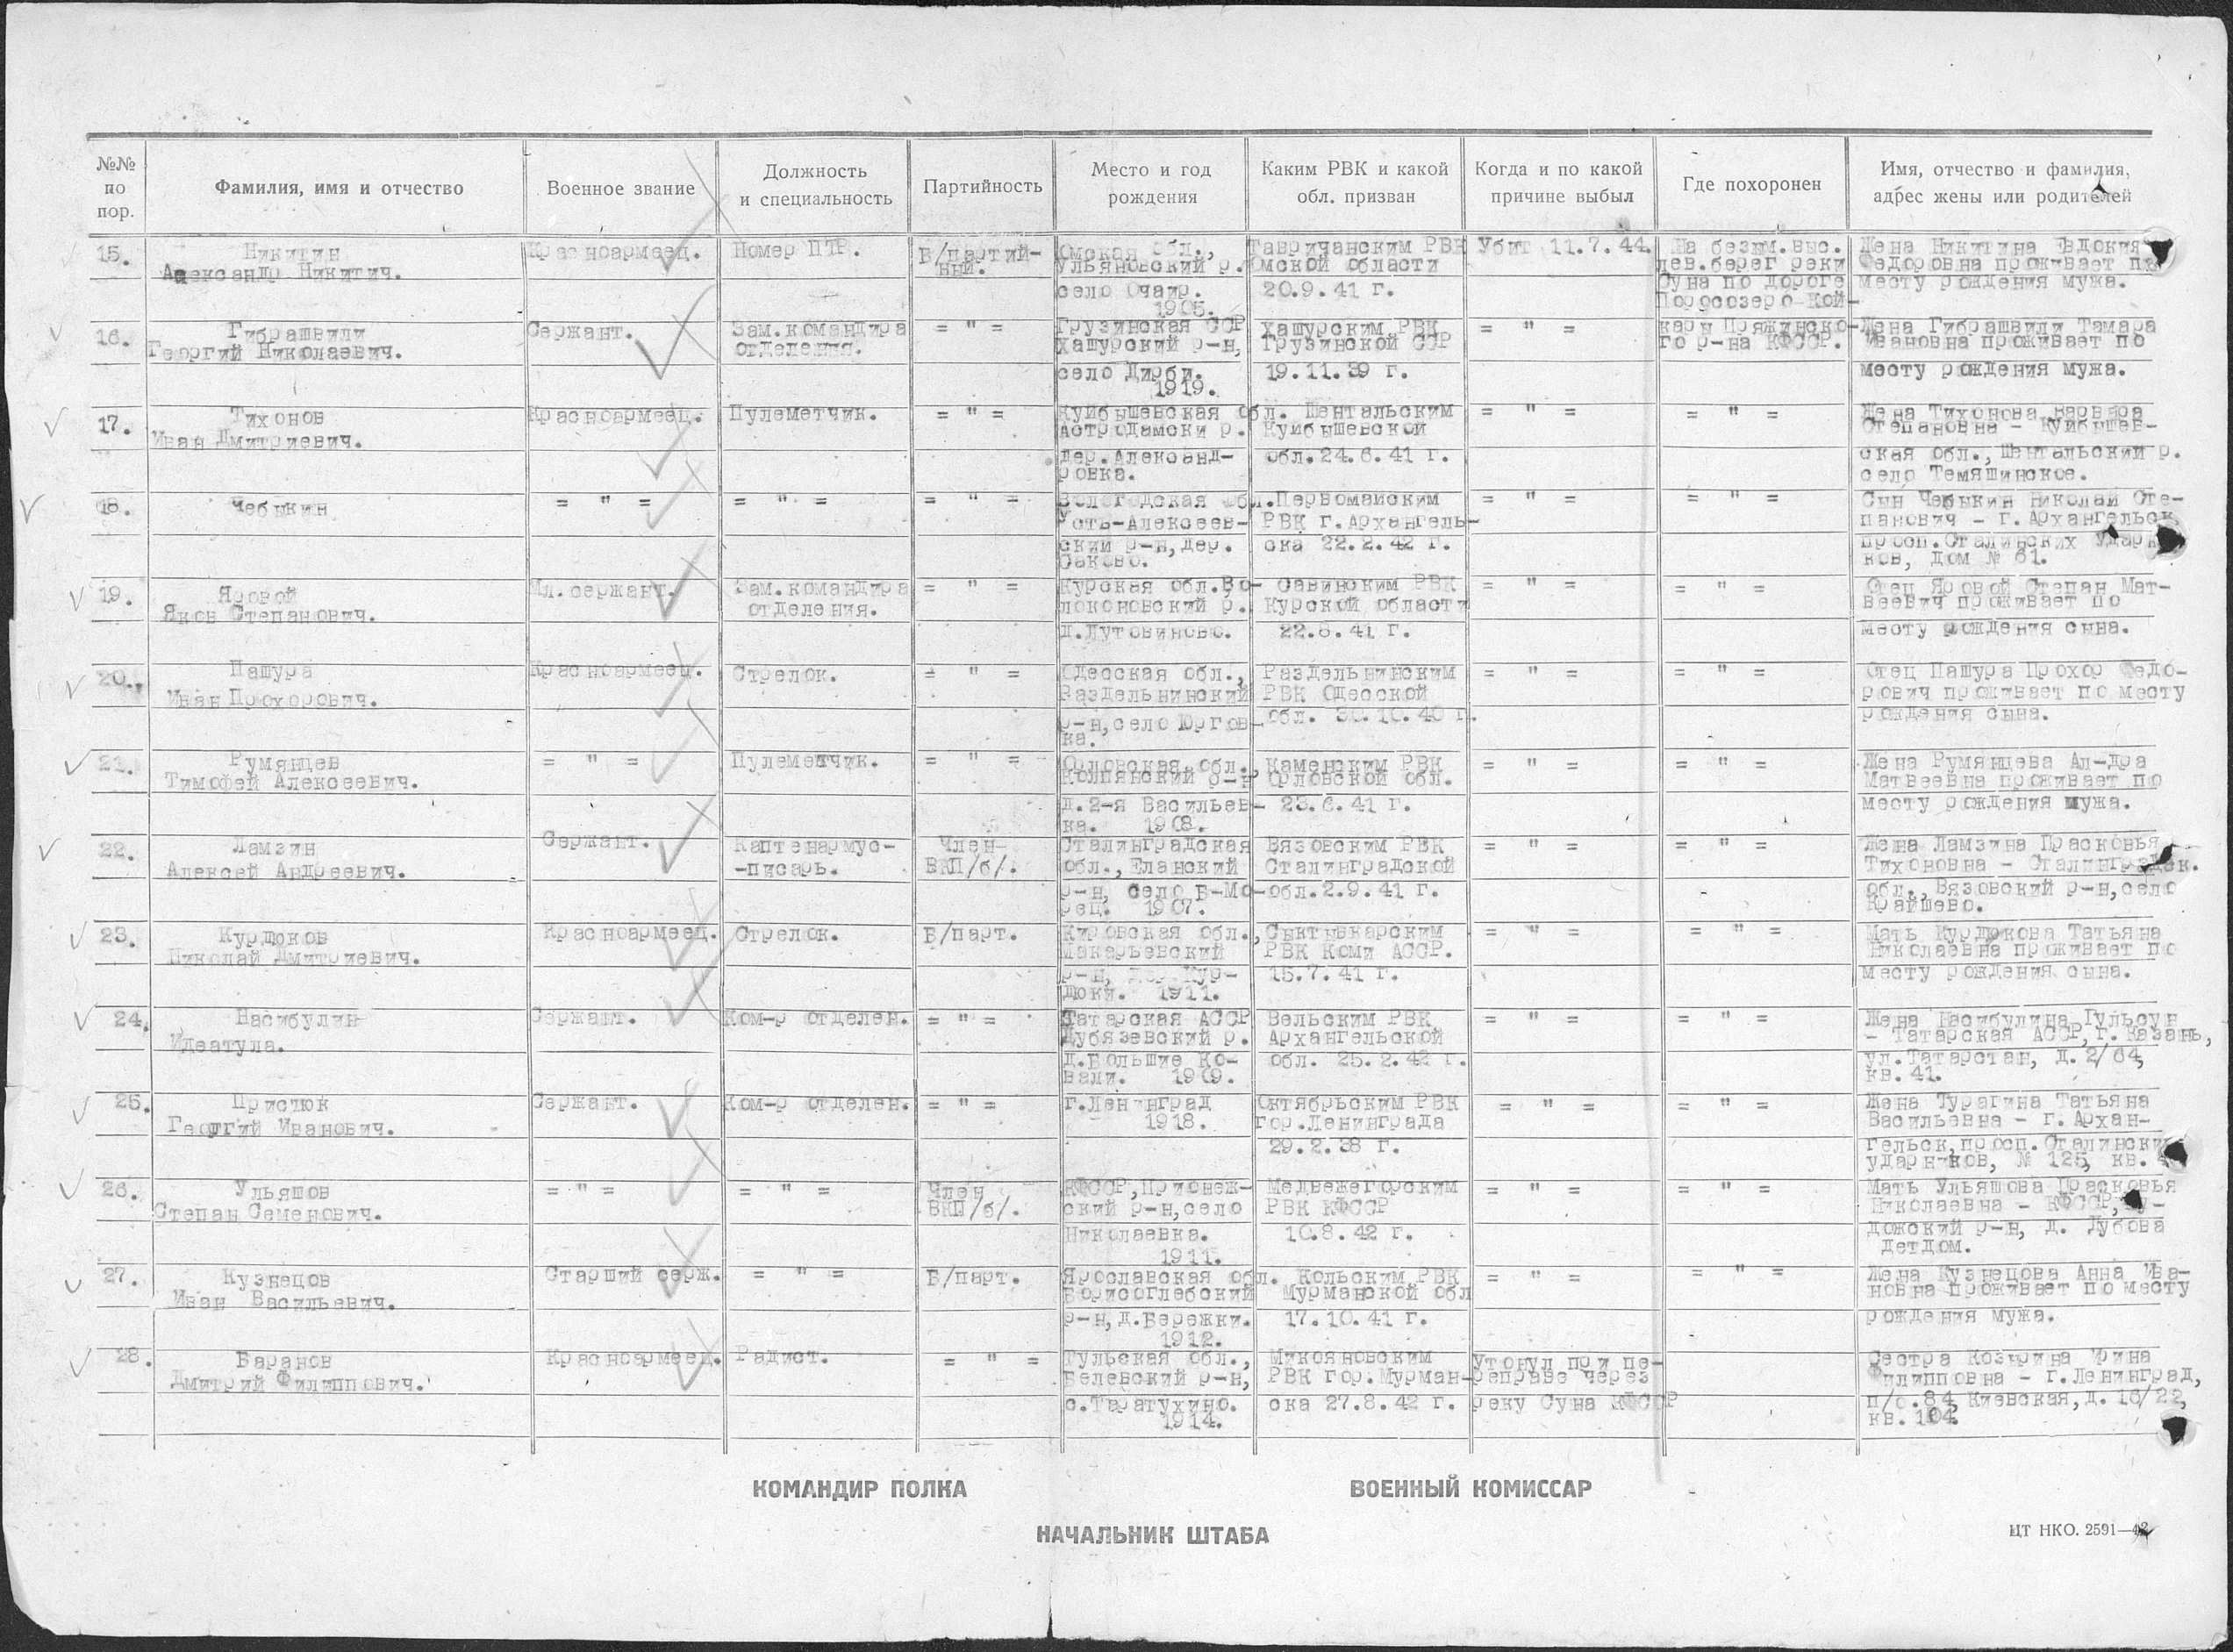 №№ по пор.
Фамилия, имя и отчество
Военное звание
Должность и специальность
Партийность
Место и год рождения
Каким РВК и какой обл. призван
Когда и по какой причине выбыл
Где похоронен
Имя, отчество и фамилия, адрес жены или родителей
15.
Никитин
Александр Никитич.
Красноармеец.
Номер ПТР.
Б/партий-
ный.
Омская обл.,
Ульяновский р.
село Очаир.
1905.
Тавричанским РВК
Омской области
20.9.41 г.
Убит 11.7.44.
На безым.выс.
лев.берег реки
Суна по дороге
Поросозеро-Кой-
кары Пряжинско-
го р-на КФССР.
Жена Никитина Евдокия
Федоровна проживает по
месту рождения мужа.
16.
Гибрашвили
Георгий Николаевич.
Сержант.
Зам.командира
отделения.
= " =
Грузинская ССР
Хашурский р-н,
село Дирби.
1919.
Хашурским РВК
Грузинской ССР
19.11.39 г.
= " =
Жена Гибрашвили Тамара
Ивановна проживает по
месту рождения мужа.
17.
Тихонов
Иван Дмитриевич.
Красноармеец.
Пулеметчик.
= " =
Куйбышевская обл.
Астродамски р.
дер.Александ-
ровка.
Шентальским
Куйбышевской
обл.24.6.41 г.
= " =
= " =
Жена Тихонова Варвара
Степановна - Куйбышев-
ская обл., Шентальский р.
село Темяшинское.
18.
Чебыкин
= " =
= " =
= " =
Вологодская обл.
Усть-Алексеев-
ским р-н,дер.
Саково.
Первомайским
РВК г.Архангель-
ска 22.2.42 г.
= " =
= " =
Сын Чебыкин Николай Сте-
панович - г.Архангельск
просп.Сталинских Ударни
ков, дом № 61.
19.
Яровой
Яков Степанович.
Мл.сержант.
Зам.командира
отделения.
= " =
Курская обл.Во-
локоновский р.
д.Лутовиново.
Савинским РВК
Курской области
22.6.41 г.
= " =
= " =
Отец Яровой Степан Мат-
веевич проживает по
месту рождения сына.
20.
Пашура
Иван Прохорович.
Красноармеец.
Стрелок.
= " =
Одесская обл.,
Раздельнинский
р-н,село Юргов-
ка.
Раздельнинским
РВК Одесской
обл. 30.10.40 г.
= " =
= " =
Отец Пашура Прохор Федо-
рович проживает по месту
рождения сына.
21.
Румянцев
Тимофей Алексеевич.
= " =
Пулеметчик.
= " =
Орловская обл.,
Колпянский р-н
д.2-я Васильев-
ка. 1908.
Каменским РВК
Орловской обл.
23.6.41 г.
= " =
= " =
Жена Румянцева Ал-дра
Матвеевна проживает по
месту рождения мужа.
22.
Ламзин
Алексей Андреевич.
Сержант.
Каптенармус-
-писарь.
Член
ВКП/б/.
Сталинградская
обл.,Еланский
р-н, село Б-Мо-
рец. 1907.
Вязовским РВК
Сталинградской
обл.2.9.41 г.
= " =
= " =
Жена Ламзина Прасковья
Тихоновна - Сталинградск.
обл.,Вязовский р-н,село
Крайшево.
23.
Курдюков
Николай Дмитриевич.
Красноармеец.
Стрелок.
Б/парт.
Кировская обл.,
Макарьевский
р-н, дер.Кур-
дюки. 1911.
Сыктывкарским
РВК Коми АССР.
15.7.41 г.
= " =
= " =
Мать Курдюкова Татьяна
Николаевна проживает по
месту рождения сына.
24.
Насибулин
Идеатула.
Сержант.
Ком-р отделен.
= " =
Татарская АССР
Дубязевский р.
д.Большие Ко-
вали. 1909.
Вельским РВК
Архангельской
обл. 25.2.42 г.
= " =
= " =
Жена Насибулина Гульсун
- Татарская АССР,г.Казань,
ул.Татарстан, д.2/64,
кв.41.
25.
Пристюк
Георгий Иванович.
Сержант.
Ком-р отделен.
= " =
г.Ленинград
1918.
Октябрьским РВК
гор.Ленинграда
29.2.38 г.
= " =
= " =
Жена Турагина Татьяна
Васильевна - г.Архан-
гельск,просп.Сталински
ударников, № 125, кв.
26.
Ульяшов
Степан Семенович.
= " =
= " =
Член
ВКП/б/.
КФССР,Прионеж-
ский р-н,село
Николаевка.
1911.
Медвежегорским
РВК КФССР
10.8.42 г.
= " =
= " =
Мать Ульяшова Прасковья
Николаевна - КФССР,Пу-
дожский р-н, д. Дубова
детдом.
27.
Кузнецов
Иван Васильевич.
Старший серж.
= " =
Б/парт.
Ярославская обл.
Борисоглебский
р-н,д.Бережки.
1912.
Кольским РВК
Мурманской обл
17.10.41 г.
= " =
= " =
Жена Кузнецова Анна Ива-
новна проживает по месту
рождения мужа.
28.
Баранов
Дмитрий Филиппович.
Красноармеец.
Радист.
= " =
Тульская обл.,
Белевский р-н,
с.Таратухино.
1914.
Микояновским
РВК гор.Мурман-
ска 27.8.42 г.
Утонул при пе-
реправе через
реку Суна КФССР
Сестра Козырина Ирина
Филипповна - г.Ленинград,
п/о.84 Киевская,д.16/22,
кв.104.
КОМАНДИР ПОЛКА
ВОЕННЫЙ КОМИССАР
НАЧАЛЬНИК ШТАБА
ЦТ НКО. 2591—42